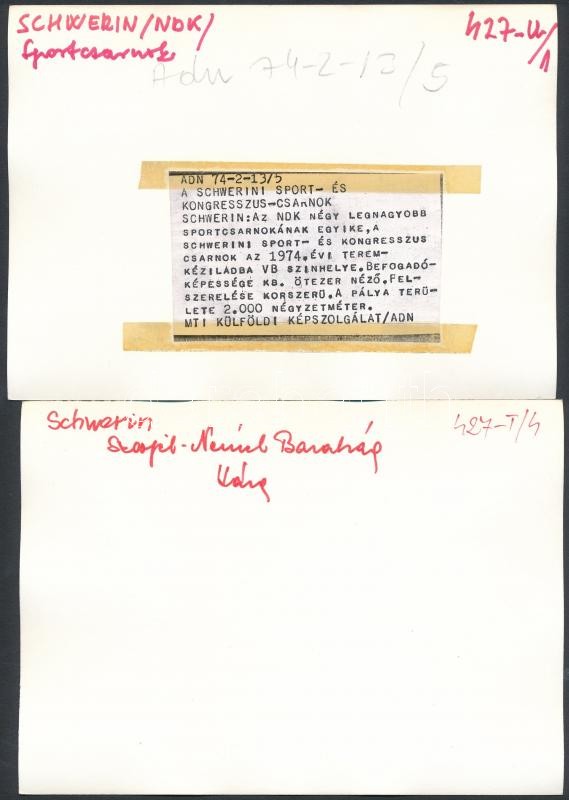 SCHWERIN/NDK/
Sportcsarnok
427-U/1
Adn 74-2-13/5
ADN 74-2-13/5
A SCHWERINI SPORT- ÉS
KONGRESSZUS-CSARNOK
SCHWERIN:AZ NDK NÉGY LEGNAGYOBB
SPORTCSARNOKÁNAK EGYIKE,A
SCHWERINI SPORT- ÉS KONGRESSZUS
CSARNOK AZ 1974.ÉVI TEREM-
KÉZILADBA VB SZINHELYE.BEFOGADÓ-
KÉPESSÉGE KB. ÖTEZER NÉZŐ.FEL-
SZERELÉSE KORSZERÜ.A PÁLYA TERÜ-
LETE 2.000 NÉGYZETMÉTER.
MTI KÜLFÖLDI KÉPSZOLGÁLAT/ADN
Schwerin
427-T/4
Szovjet-Német Barátság
Háza